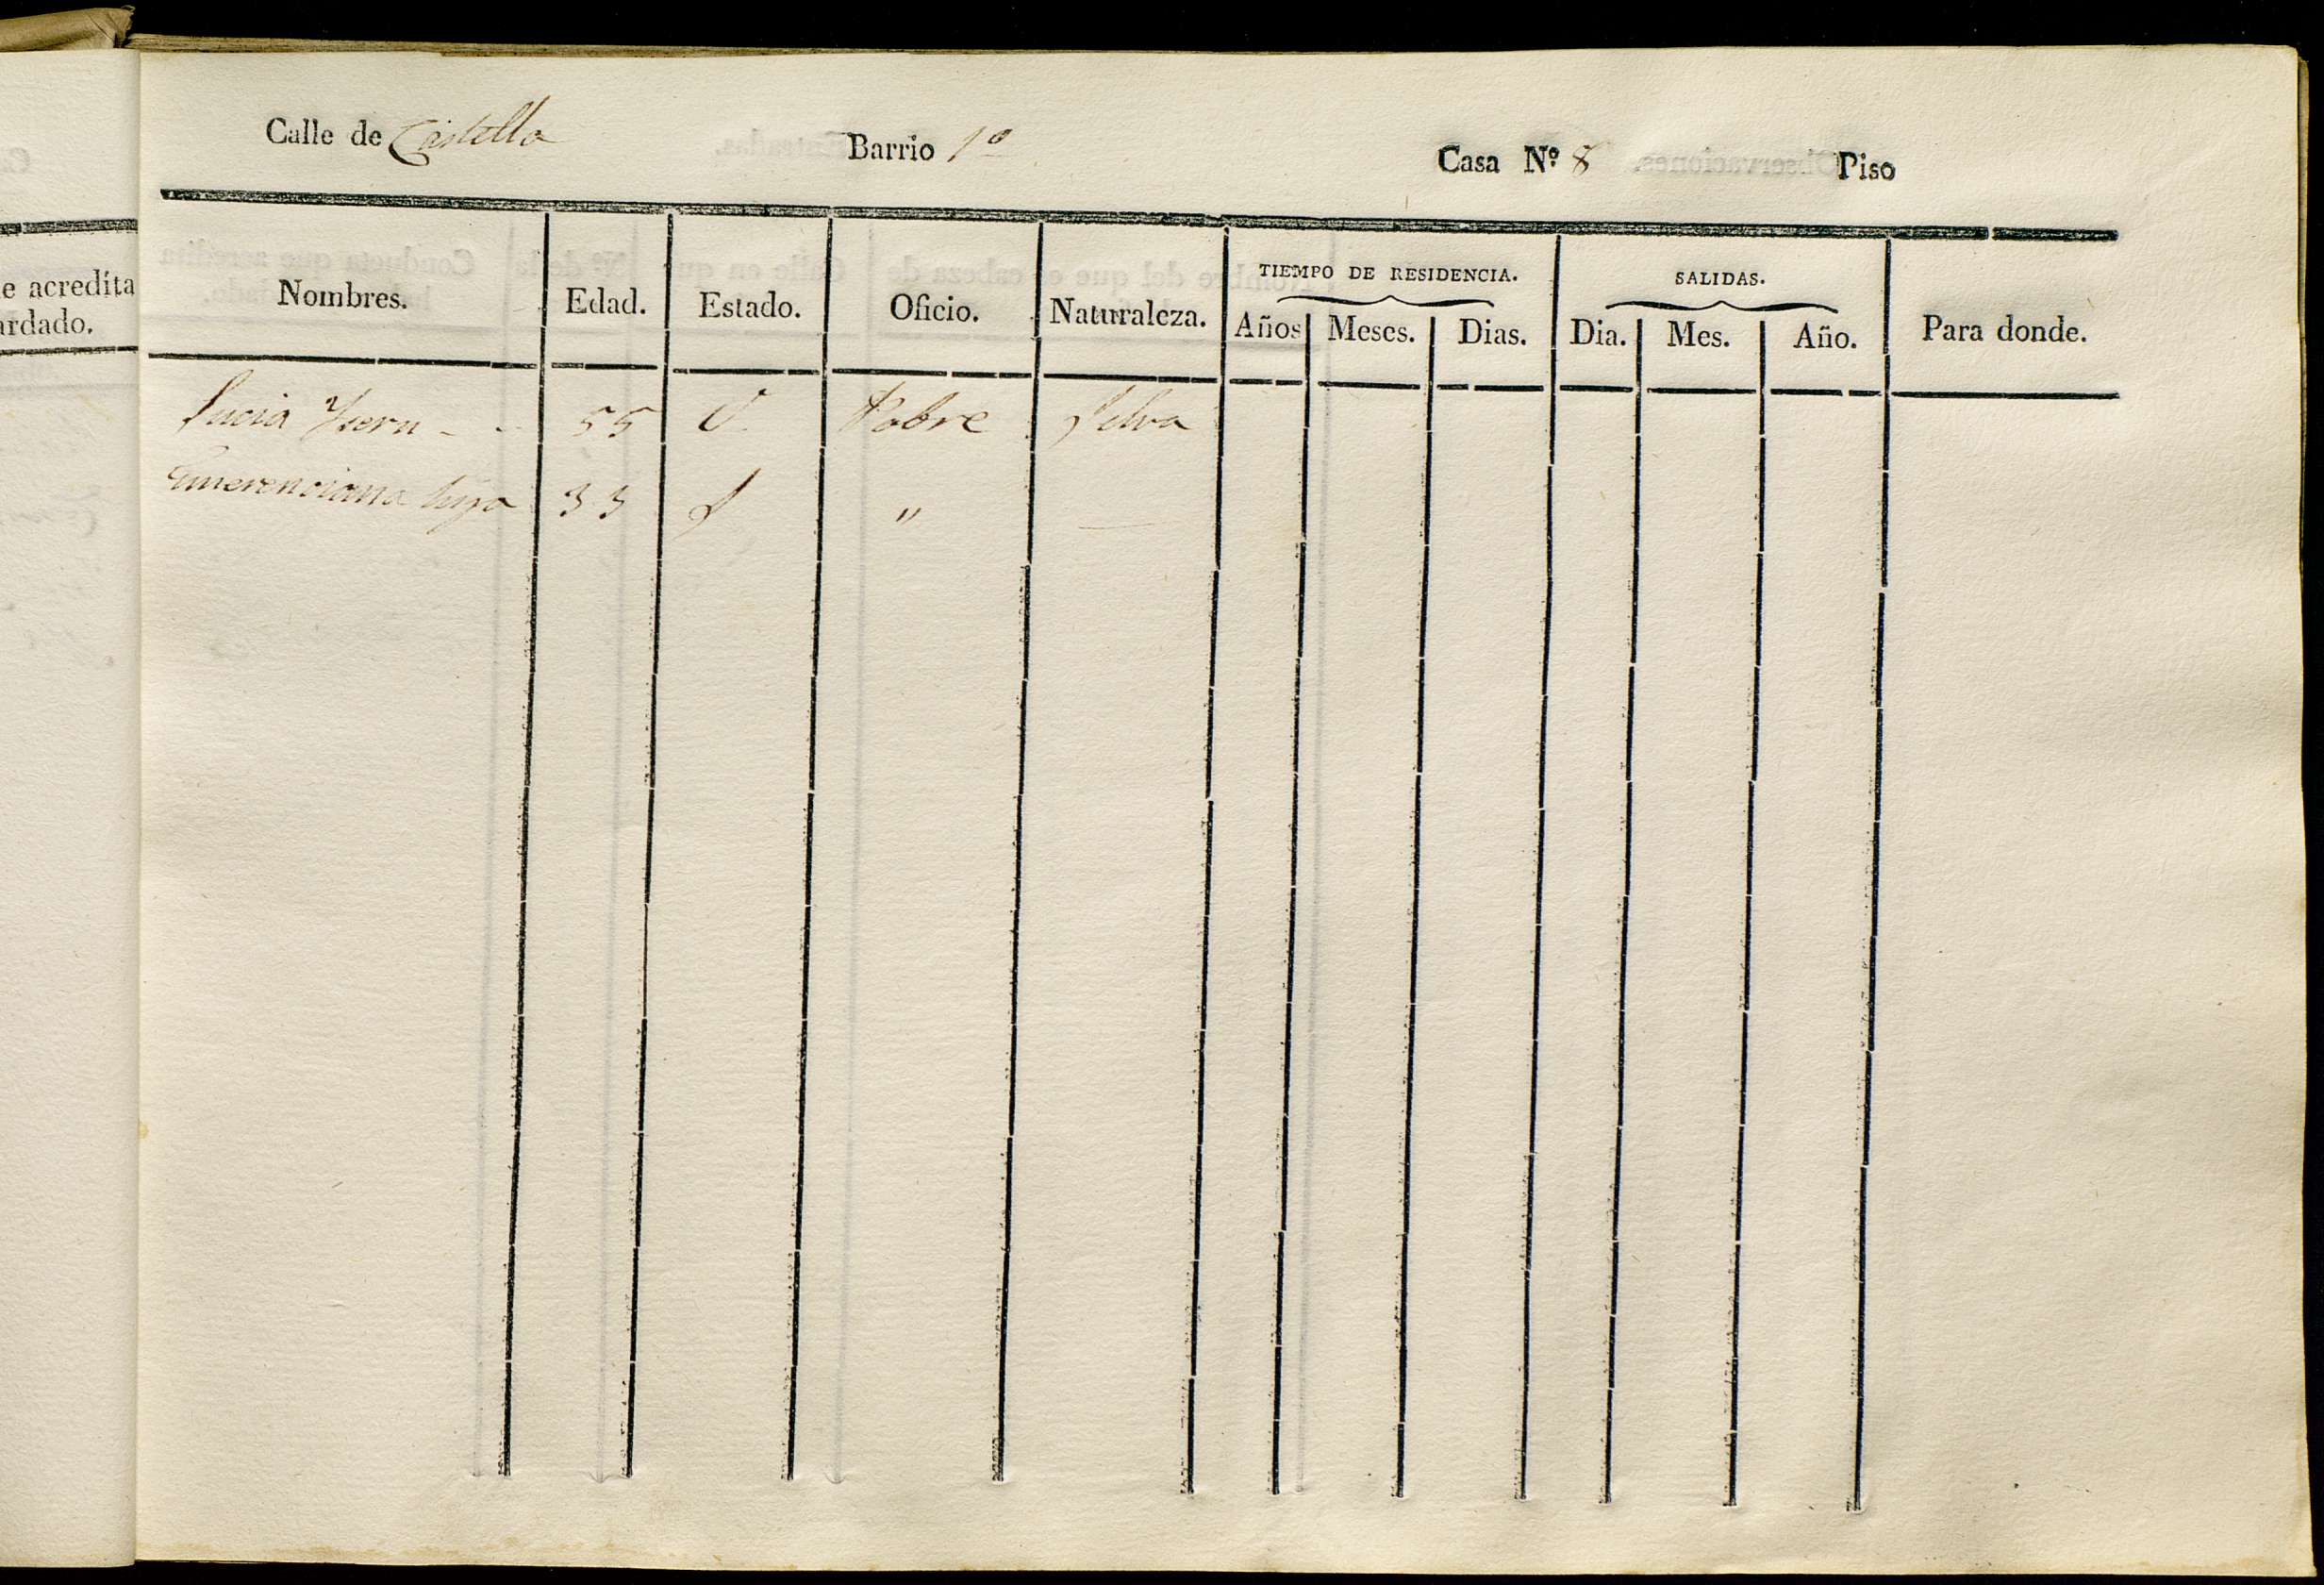 Calle de Castello Barrio 1º Casa Nº 8 Piso
e acredita
ardado.
TIEMPO DE RESIDENCIA. SALIDAS.
Nombres. Edad. Estado. Oficio. Naturaleza. Años Meses. Dias. Dia. Mes. Año. Para donde.
Lucia Ysern - - 55 V. Pobre Selva
Emerenciana hija 33 S " —